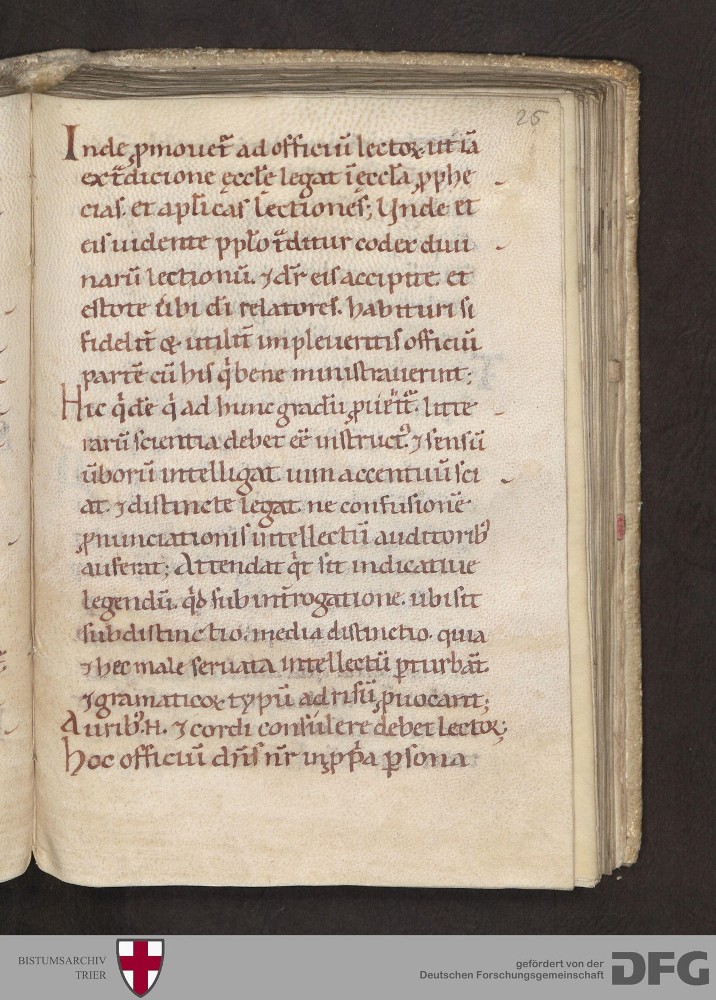 26
Inde ꝓmouet̄ ad officiū lectoꝝ. ut iā
ex t̄dicione ęccłe legat ī ęccła ꝓphe
cias. et apłicas lectiones; Unde et
eis uidente ppło t̄ditur codex diui
narū lectionū. ⁊ dr̄ eis accipite. et
estote ūbi dı̄ relatores. habituri si
fidelit̄ & utilit̄ impleueritis officiū
partē cū his q̄ bene ministrauerint;
Hic q̄ dē q̄ ad hunc gradū ꝓuehit̄. litte
rarū scientia debet eē instructꝰ. ⁊ sensū
ūborū intelligat. uim accentuū sci
at. ⁊ distincte legat. ne confusione
ꝓnunciationis intellectū auditoribꝰ
auferat; Attendat q̄t sit indicatiue
legendū. q̄d sub int̄rogatione. ubi sit
subdistinctio. media distinctio. quia
⁊ hec male seruata intellectū ꝑturbāt.
⁊ gramaticoꝝ typū ad risū ꝓuocant;
Auribꝰ .H. ⁊ cordi consulere debet lectoꝝ;
Hoc officiū dn̄s nr̄ in ꝓpͥa ꝑsona
BISTUMSARCHIV
TRIER
gefördert von der
Deutschen Forschungsgemeinschaft
DFG